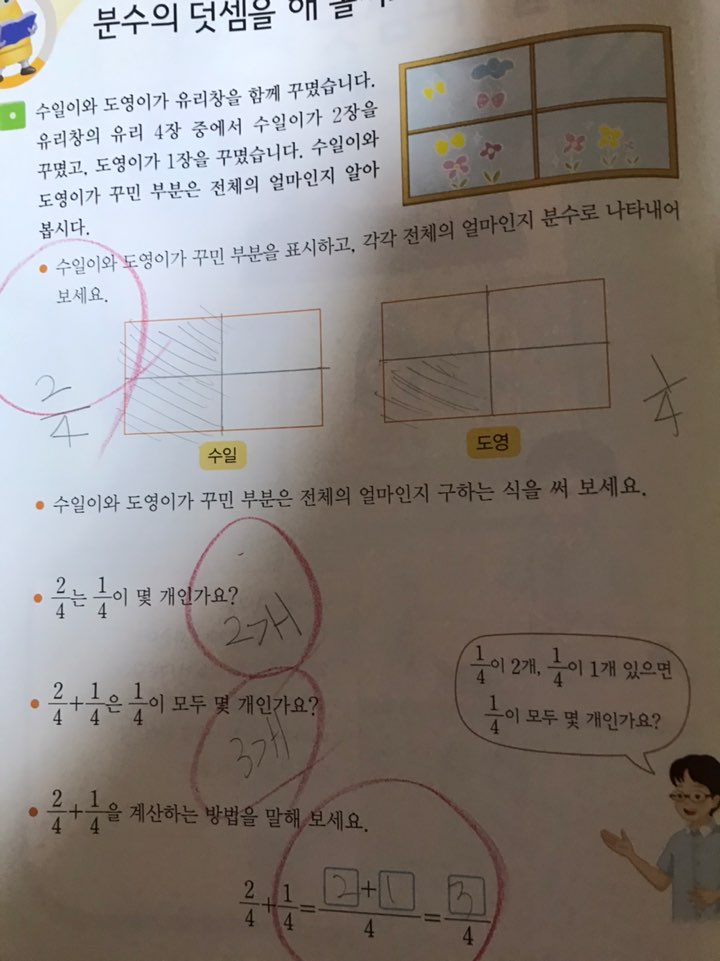 분수의 덧셈을 해
수일이와 도영이가 유리창을 함께 꾸몄습니다.
유리창의 유리 4장 중에서 수일이가 2장을
꾸몄고, 도영이가 1장을 꾸몄습니다. 수일이와
도영이가 꾸민 부분은 전체의 얼마인지 알아
봅시다.
• 수일이와 도영이가 꾸민 부분을 표시하고, 각각 전체의 얼마인지 분수로 나타내어
보세요.
2/4
1/4
수일
도영
• 수일이와 도영이가 꾸민 부분은 전체의 얼마인지 구하는 식을 써 보세요.
• 2/4는 1/4이 몇 개인가요?
2개
1/4이 2개, 1/4이 1개 있으면
1/4이 모두 몇 개인가요?
• 2/4+1/4은 1/4이 모두 몇 개인가요?
3개
• 2/4+1/4을 계산하는 방법을 말해 보세요.
2/4+1/4=2+1/4=3/4